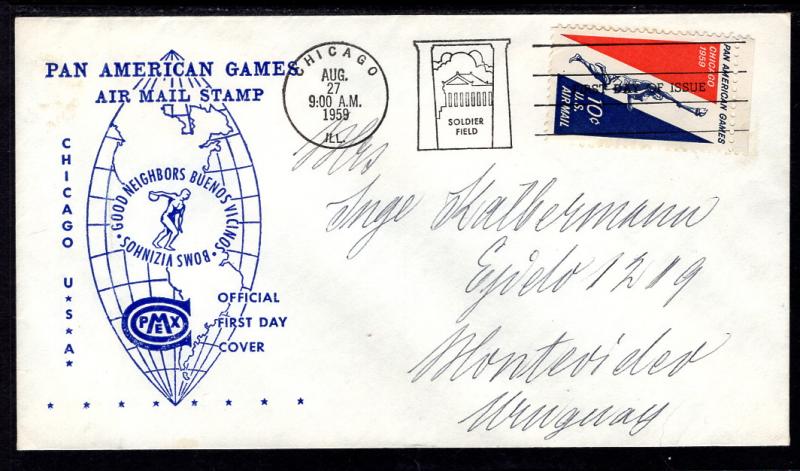 PAN AMERICAN GAMES
AIR MAIL STAMP
CHICAGO U★S★A★
GOOD NEIGHBORS BUENOS VICINOS • BOMS VIZINHOS •
CPMEX
OFFICIAL
FIRST DAY
COVER
CHICAGO
AUG.
27
9:00 A.M.
1959
ILL.
SOLDIER
FIELD
FIRST DAY OF ISSUE
PAN AMERICAN GAMES
CHICAGO
1959
10c
U.S.
AIR MAIL
Inge Kalbermann
1219
Montevideo
Uruguay